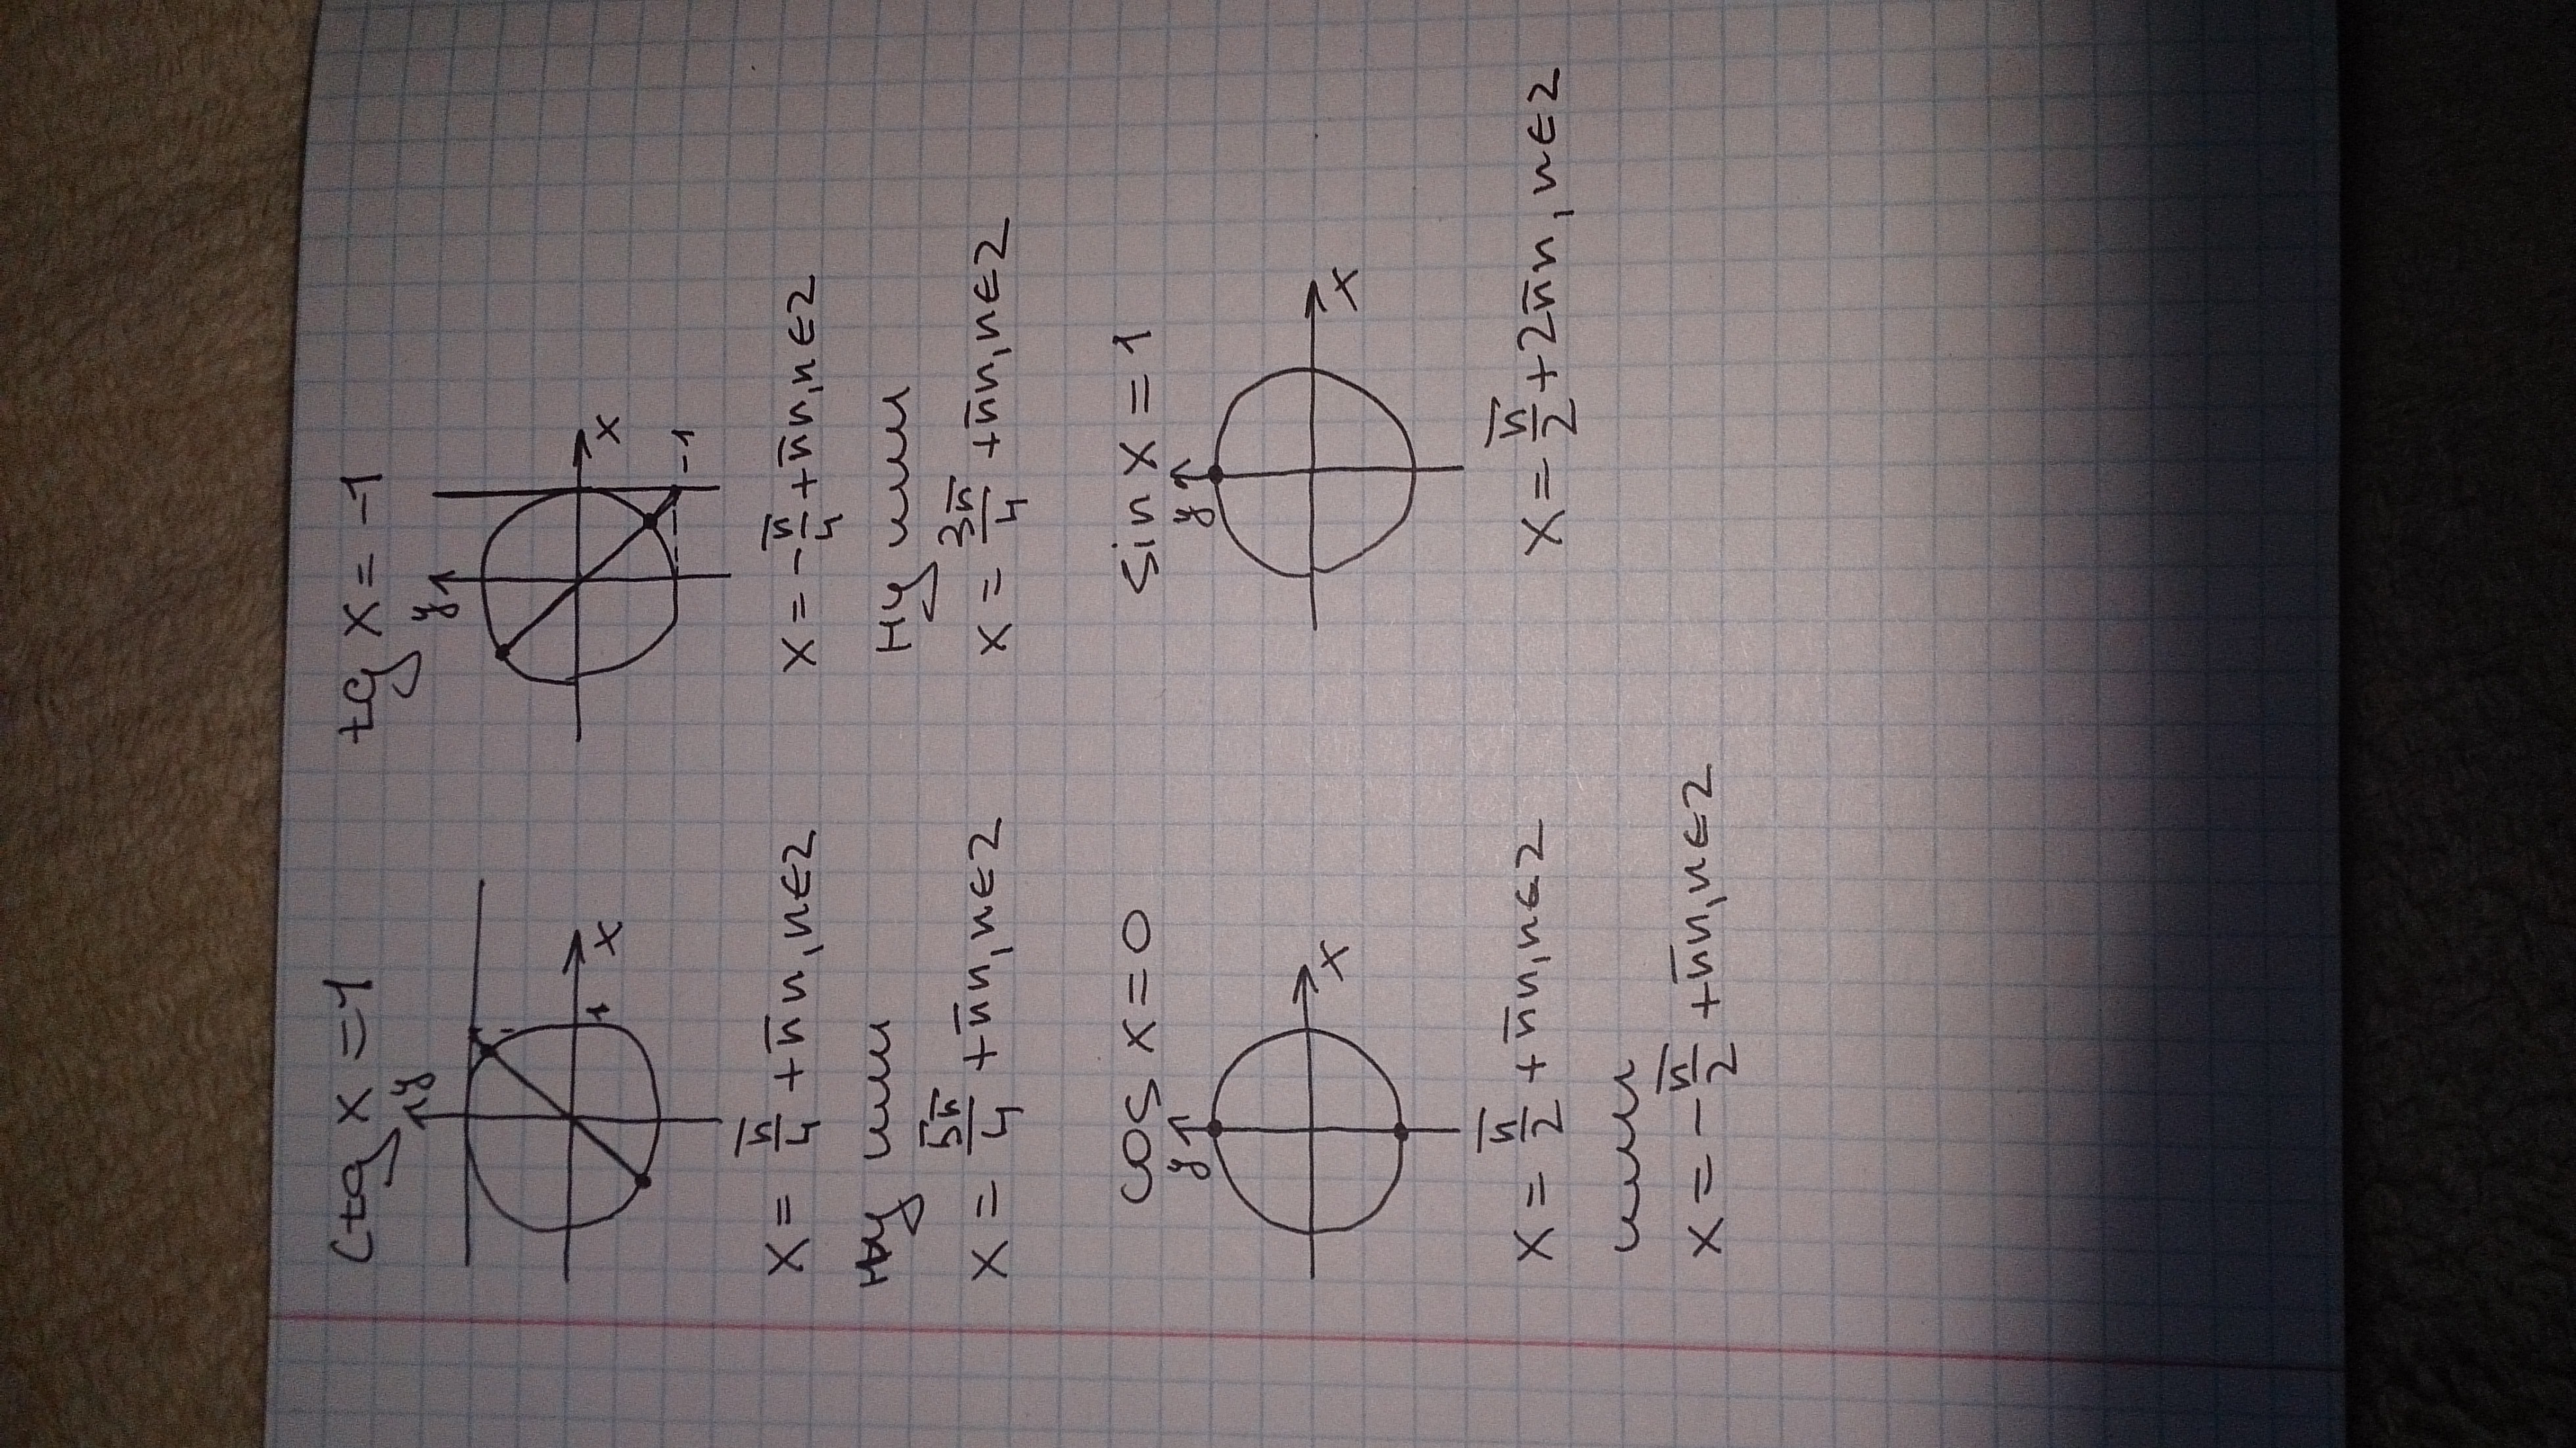 ctg x = 1
y
x
1
x = π/4 + πn, n∈Z
Ну или
x = 5π/4 + πn, n∈Z
tg x = -1
y
x
-1
x = -π/4 + πn, n∈Z
Ну или
x = 3π/4 + πn, n∈Z
cos x = 0
y
x
x = π/2 + πn, n∈Z
или
x = -π/2 + πn, n∈Z
sin x = 1
y
x
x = π/2 + 2πn, n∈Z